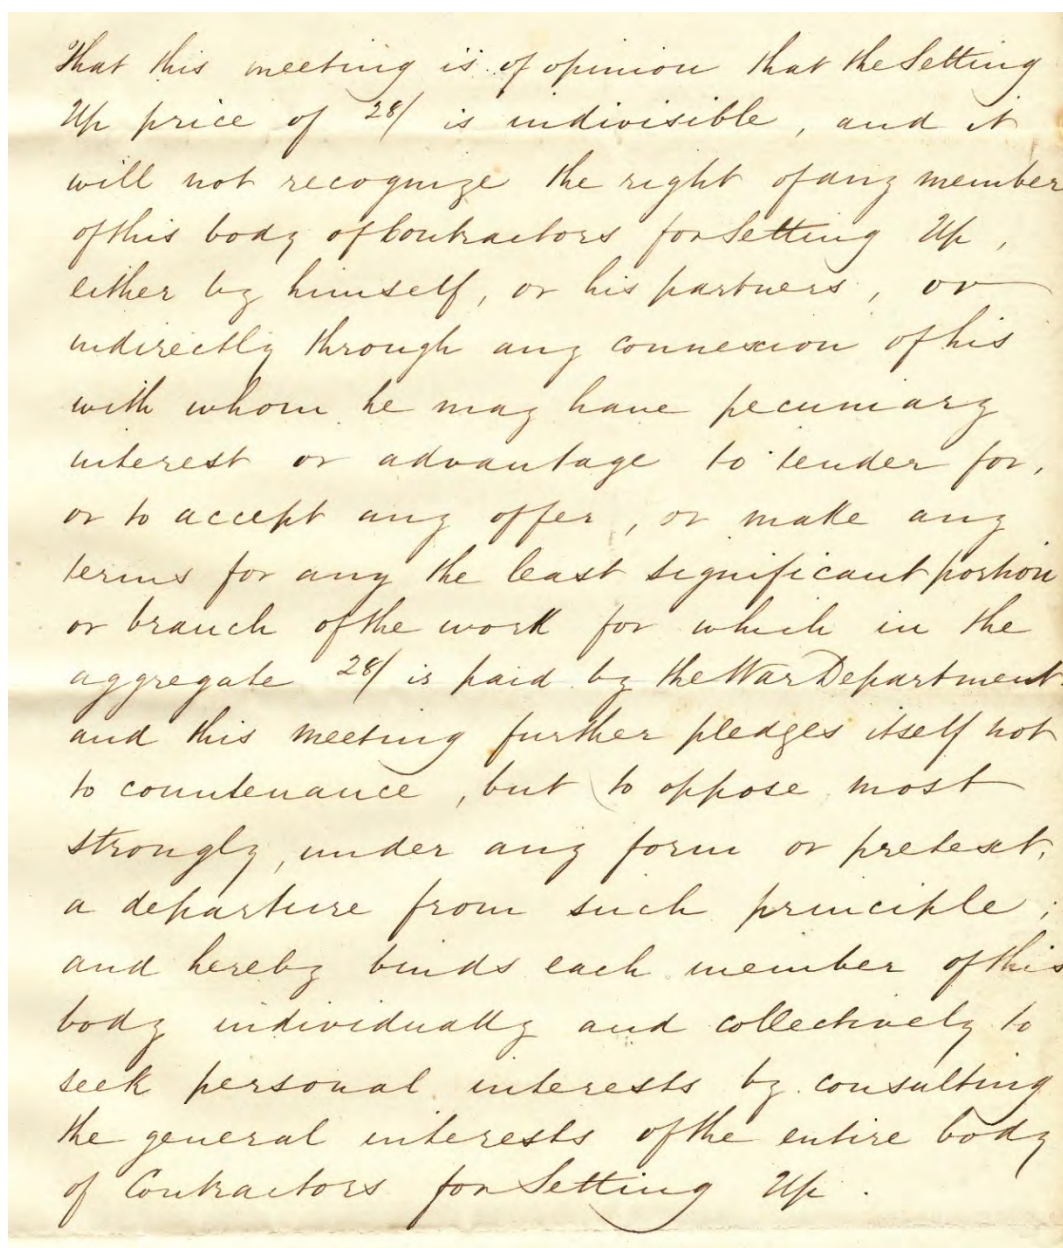 That this meeting is of opinion that the Setting
Up price of 28/ is indivisible, and it
will not recognize the right of any member
of this body of Contractors for Setting Up,
either by himself, or his partners, or
indirectly through any connexion of his
with whom he may have pecuniary
interest or advantage to tender for,
or to accept any offer, or make any
terms for any the least significant portion
or branch of the work for which in the
aggregate 28/ is paid by the War Department
and this meeting further pledges itself not
to countenance, but to oppose most
strongly, under any form or pretext,
a departure from such principle;
and hereby binds each member of this
body individually and collectively to
seek personal interests by consulting
the general interests of the entire body
of Contractors for Setting Up.